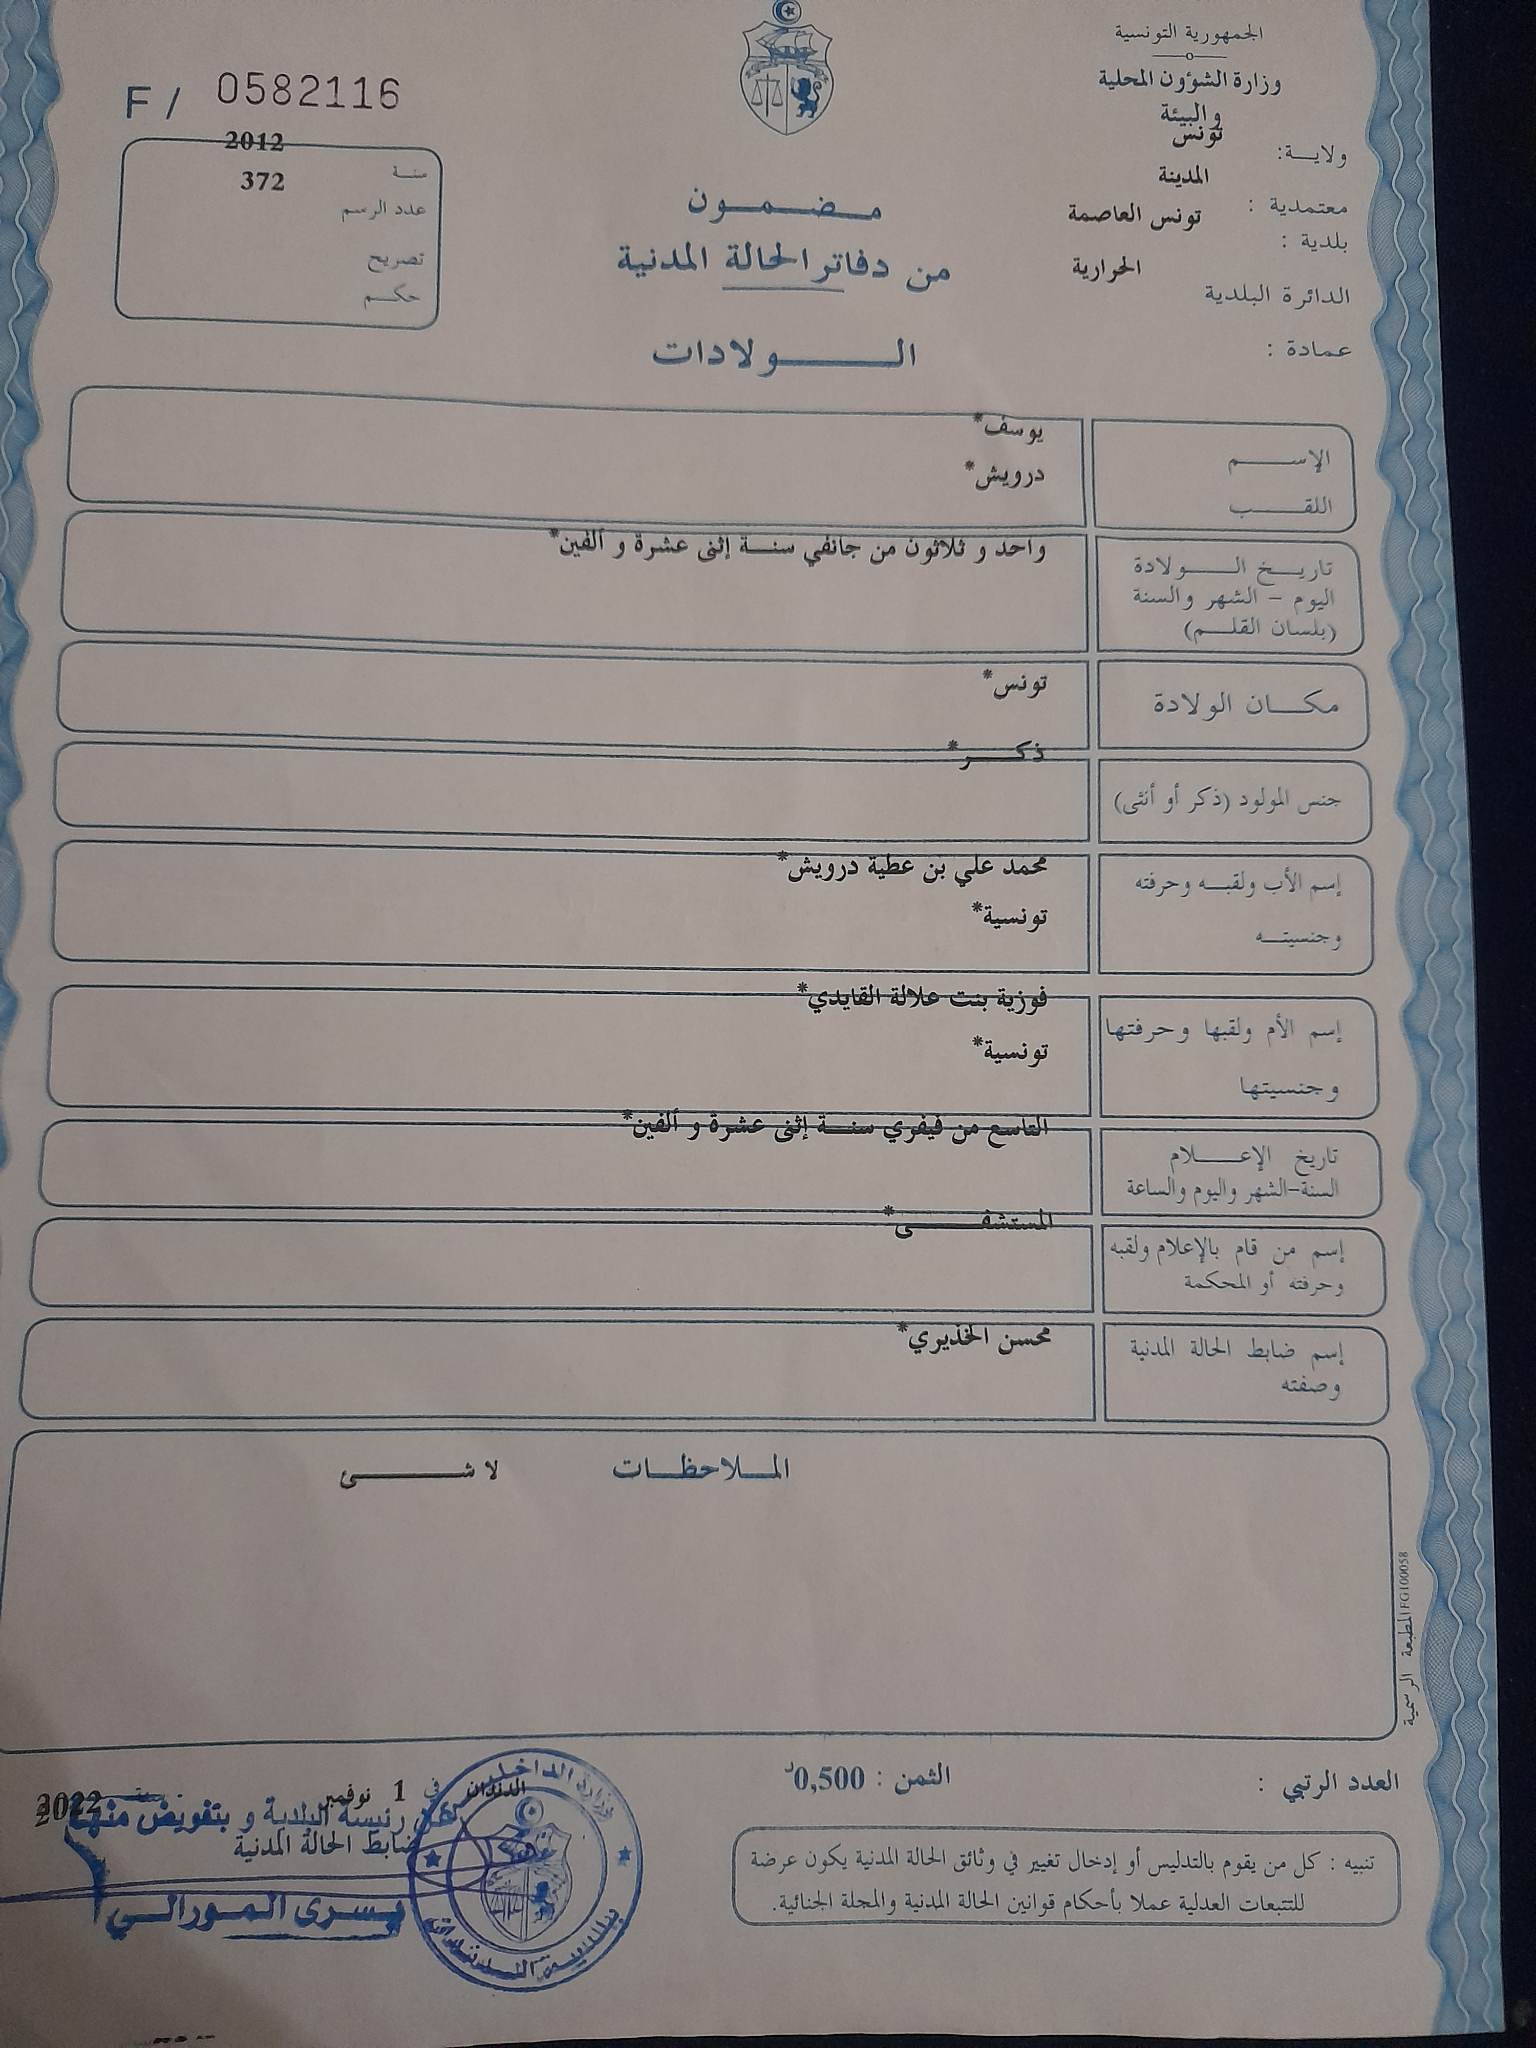 الجمهورية التونسية
وزارة الشؤون المحلية
والبيئة
ولايـــة: تونس
معتمدية : المدينة
بلدية : تونس العاصمة
الدائرة البلدية الحرارية
عمادة :
F / 0582116
سنــة 2012
عدد الرسم 372
تصريح
حكــم
مـــضـــمـــون
من دفاتر الحالة المدنية
الــــــولادات
الإســـــم يوسف*
اللقـــــب درويش*
تاريــــخ الـــــولادة
اليوم – الشهر والسنة
(بلسان القلـــم)
واحد و ثلاثون من جانفي سنـــة إثنى عشرة و ألفين*
مكـــان الولادة تونس*
جنس المولود (ذكر أو أنثى) ذكـــــر*
إسم الأب ولقبـــه وحرفته محمد علي بن عطية درويش*
وجنسيتـــه تونسية*
إسم الأم ولقبها وحرفتها فوزية بنت علالة القايدي*
وجنسيتها تونسية*
تاريخ الإعـــــلام
السنة-الشهر واليوم والساعة
التاسع من فيفري سنـــة إثنى عشرة و ألفين*
إسم من قام بالإعلام ولقبه
وحرفته أو المحكمة
المستشفـــــــى*
إسم ضابط الحالة المدنية
وصفته
محسن الخذيري*
المـــلاحظـــات لا شـــــــئ
المطبعة الرسمية FG100058
العدد الرتبي :
الثمن : 0,500د
الدندان في 1 نوفمبر سنة 2022
عن رئيسة البلدية و بتفويض منها
ضابط الحالة المدنية
يسرى المورالي
وزارة الداخلية
تنبيه : كل من يقوم بالتدليس أو إدخال تغيير في وثائق الحالة المدنية يكون عرضة
للتتبعات العدلية عملا بأحكام قوانين الحالة المدنية والمجلة الجنائية.